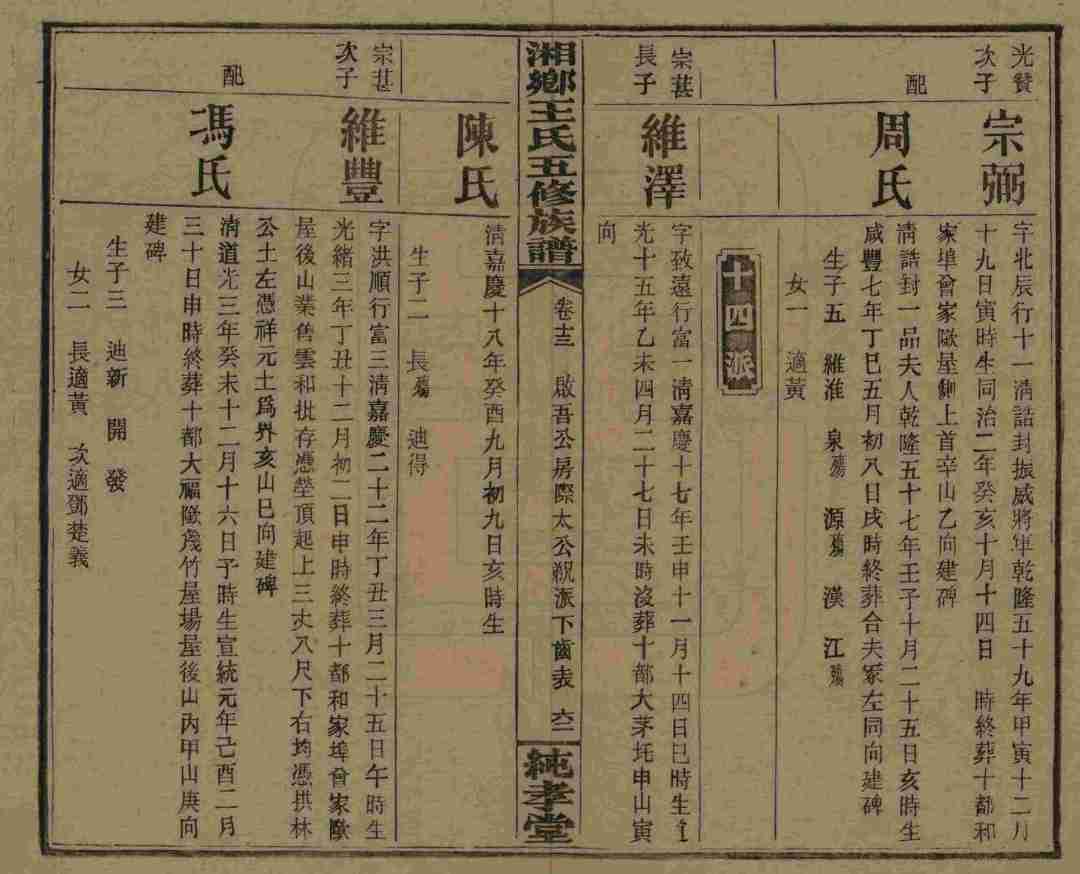 光贊
次子
宗弼
字北辰行十一清誥封振威將軍乾隆五十九年甲寅十二月
十九日寅時生同治二年癸亥十月十四日 時終葬十都和
家埠會家歐屋側上首辛山乙向建碑
配
周氏
清誥封一品夫人乾隆五十七年壬子十月二十五日亥時生
咸豐七年丁巳五月初八日戌時終葬合夫冢左同向建碑
生子五 維淮 泉殤 源殤 漢 江殤
女一 適黃
十四派
宗葚
長子
維澤
字致遠行富一清嘉慶十七年壬申十一月十四日巳時生
光十五年乙未四月二十七日未時沒葬十都大茅坨申山寅
向
湘鄉王氏五修族譜
卷十三 啟吾公房際太公派下齒表 六二
純孝堂
陳氏
清嘉慶十八年癸酉九月初九日亥時生
生子二 長殤 迪得
宗葚
次子
維豐
字洪順行富三清嘉慶二十二年丁丑三月二十五日午時生
光緒三年丁丑十二月初二日申時終葬十都和家埠會家歐
屋後山業售雲和批存憑塋頂起上三丈八尺下右均憑拱林
公土左憑祥元土為界亥山巳向建碑
配
馮氏
清道光三年癸未十二月十六日子時生宣統元年己酉二月
三十日申時終葬十都大福㘰竹屋場屋後山內甲山庚向
建碑
生子三 迪新 開 發
女二 長適黃 次適鄧楚義